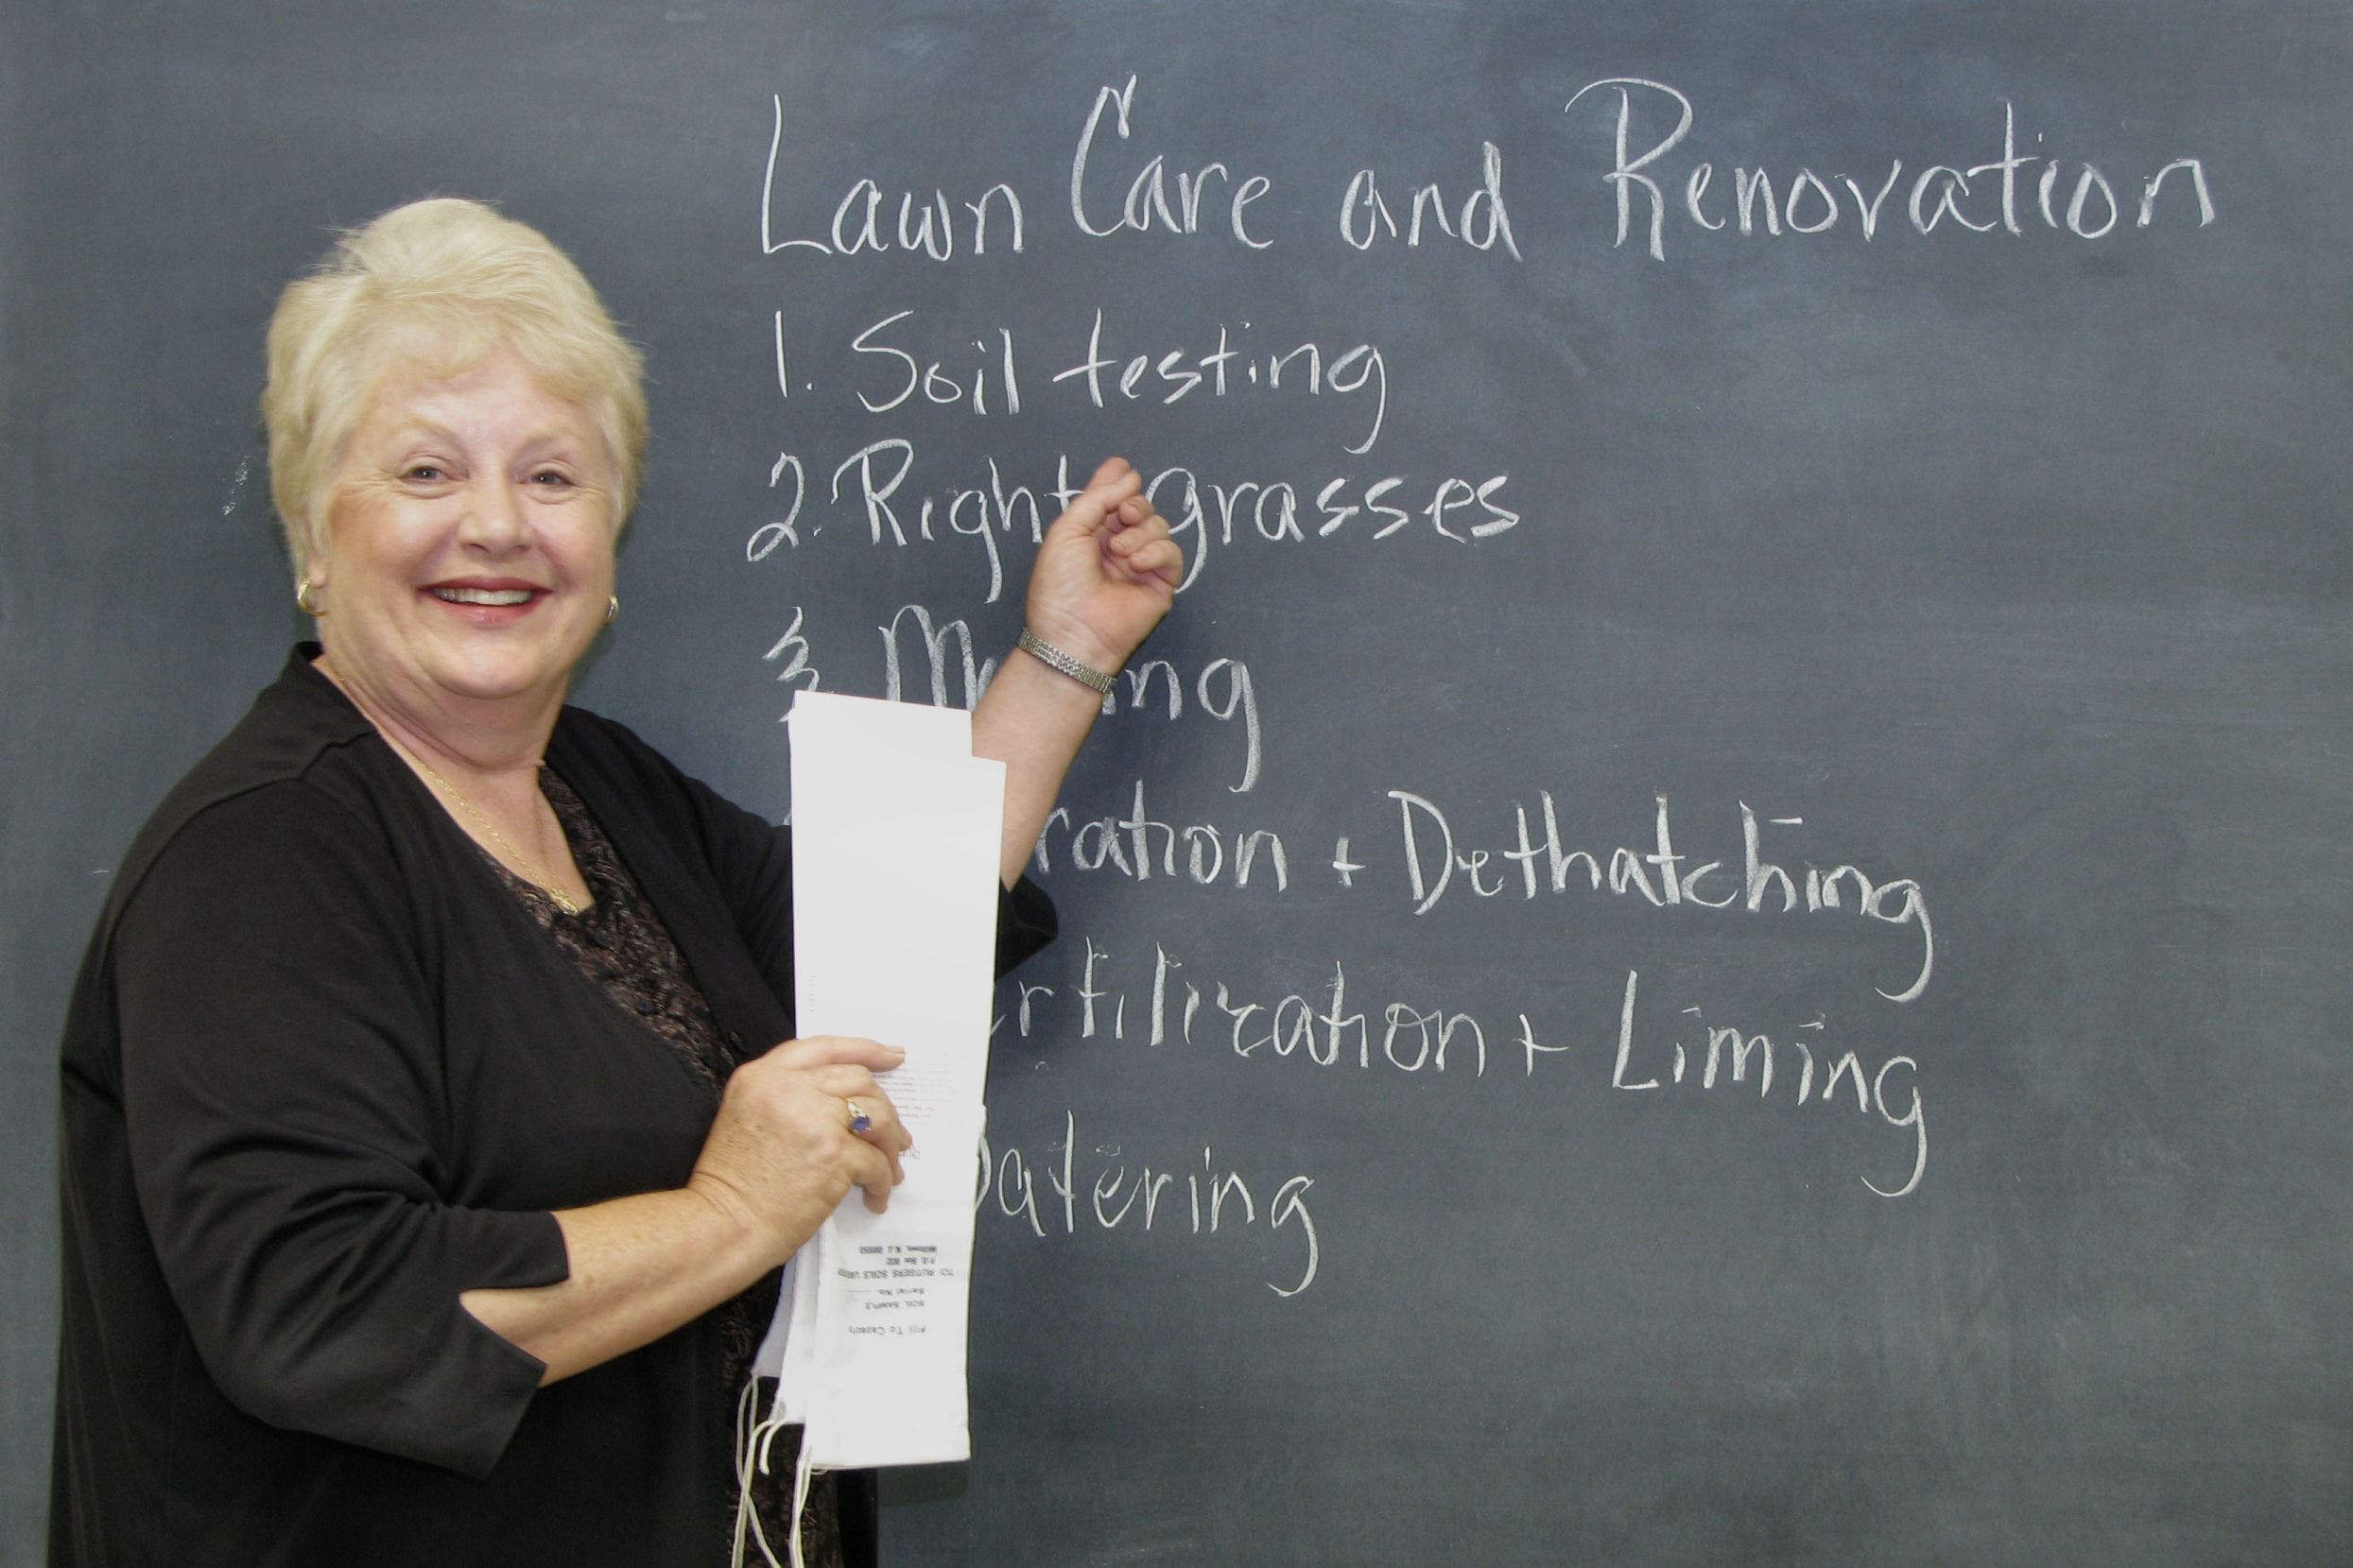 Lawn Care and Renovation
1. Soil testing
2. Right grasses
3 M ing
ration + Dethatching
rtilization + Liming
atering
Fill To Capacity
SOIL SAMPLE
Serial No.
TO: RUTGERS SOILS
P.O. Box 902
Milltown, N.J. 08850